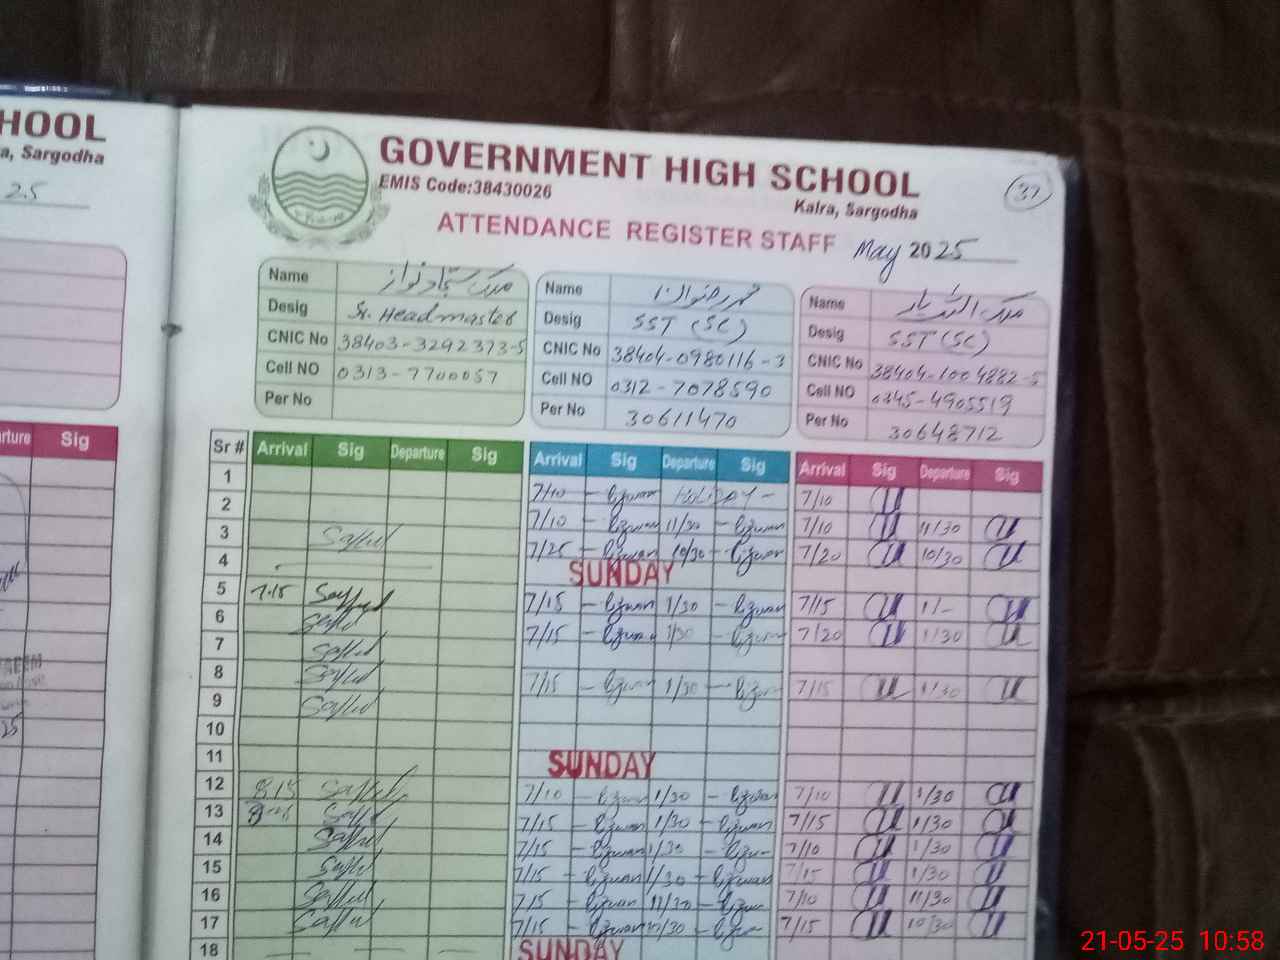 HOOL
a, Sargodha
25
rture Sig
GOVERNMENT HIGH SCHOOL
EMIS Code:38430026
Kalra, Sargodha
37
ATTENDANCE REGISTER STAFF May 2025
Name
Desig Sr. Headmaster
CNIC No 38403-3292373-5
Cell NO 0313-7700057
Per No
Name محمد رضوان
Desig SST (SC)
CNIC No 38404-0980116-3
Cell NO 0312-7078590
Per No 30611470
Name
Desig SST (SC)
CNIC No 38404-1004882-5
Cell NO 0345-4905519
Per No 30648712
Sr # Arrival Sig Departure Sig Arrival Sig Departure Sig Arrival Sig Departure Sig
1 7/10 – Rizwan HOLIDAY – 7/10
2 7/10 – Rizwan 11/30 – Rizwan 7/10 11/30
3 7/25 – Rizwan 10/30 – Rizwan 7/20 10/30
4 SUNDAY
5 7.15 7/15 – Rizwan 1/30 – Rizwan 7/15 1/–
6 7/15 – Rizwan 1/30 – Rizwan 7/20 1/30
7
8 7/15 – Rizwan 1/30 – Rizwan 7/15 1/30
9
10
11 SUNDAY
12 8.15 7/10 – Rizwan 1/30 – Rizwan 7/10 1/30
13 7/15 – Rizwan 1/30 – Rizwan 7/15 1/30
14 7/15 – Rizwan 1/30 – Rizwan 7/10 1/30
15 7/15 – Rizwan 1/30 – Rizwan 7/15 1/30
16 7/15 – Rizwan 11/30 – Rizwan 7/10 11/30
17 7/15 – Rizwan 10/30 – Rizwan 7/15 10/30
18 SUNDAY
21-05-25 10:58